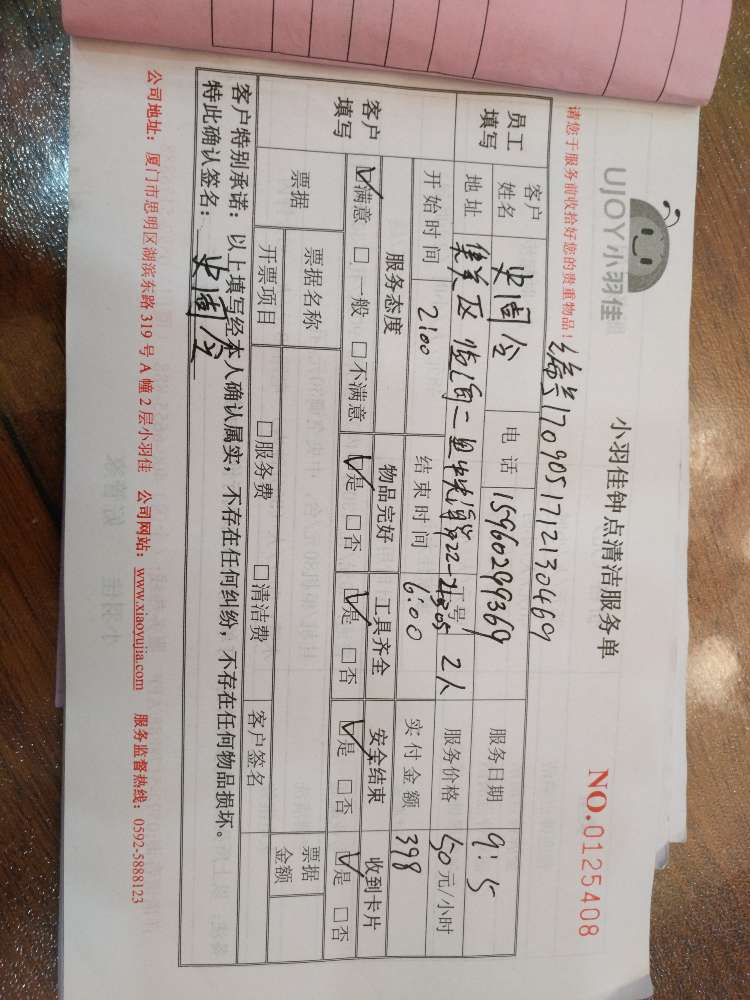 UJOY小羽佳
小羽佳钟点清洁服务单
NO.0125408
请您于服务前收拾好您的贵重物品!
编号1709051712130469
员工填写
客户姓名
电话 15960299369
服务日期 9:5
地址 集美区
二里
工号 2人
服务价格 50元/小时
开始时间 2:00
结束时间 6:00
实付金额 398
客户填写
服务态度
物品完好
工具齐全
安全结束
收到卡片
☑满意 □一般 □不满意
☑是 □否
☑是 □否
☑是 □否
☑是 □否
票据
票据名称
票据金额
开票项目
□服务费 □清洁费
客户签名
客户特别承诺:以上填写经本人确认属实,不存在任何纠纷,不存在任何物品损坏。
特此确认签名:
公司地址:厦门市思明区湖滨东路 319 号 A 幢 2 层小羽佳 公司网站:www.xiaoyujia.com 服务监督热线:0592-5888123